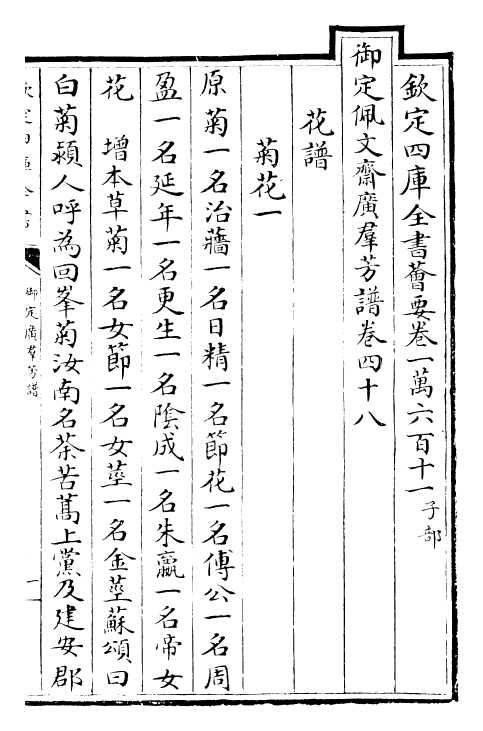 欽定四庫全書薈要卷一萬六百十一子部
御定佩文齋廣羣芳譜卷四十八
花譜
菊花一
原菊一名治蘠一名日精一名節花一名傅公一名周
盈一名延年一名更生一名陰成一名朱嬴一名帝女
花增本草菊一名女節一名女莖一名金莖蘇頌曰
白菊潁人呼為回峯菊汝南名荼苦蒿上黨及建安郡
御定廣羣芳譜
一